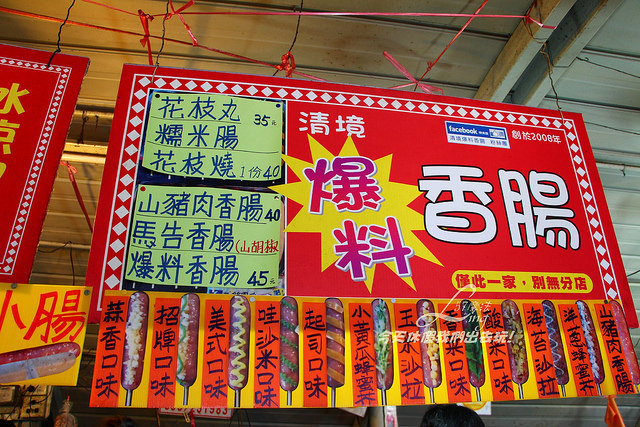 水京
小腸
花枝丸 35元
糯米腸
花枝燒 1份40
山豬肉香腸 40
馬告香腸(山胡椒
爆料香腸 45元
清境
爆料
香腸
facebook
創於2008年
僅此一家，別無分店
蒜香口味
招牌口味
美式口味
哇沙米口味
起司口味
小黃瓜蜂蜜芥
玉米沙拉
酸菜口味
海苔沙拉
洋蔥蜂蜜芥
山豬肉香腸
今天休假我們出去玩!